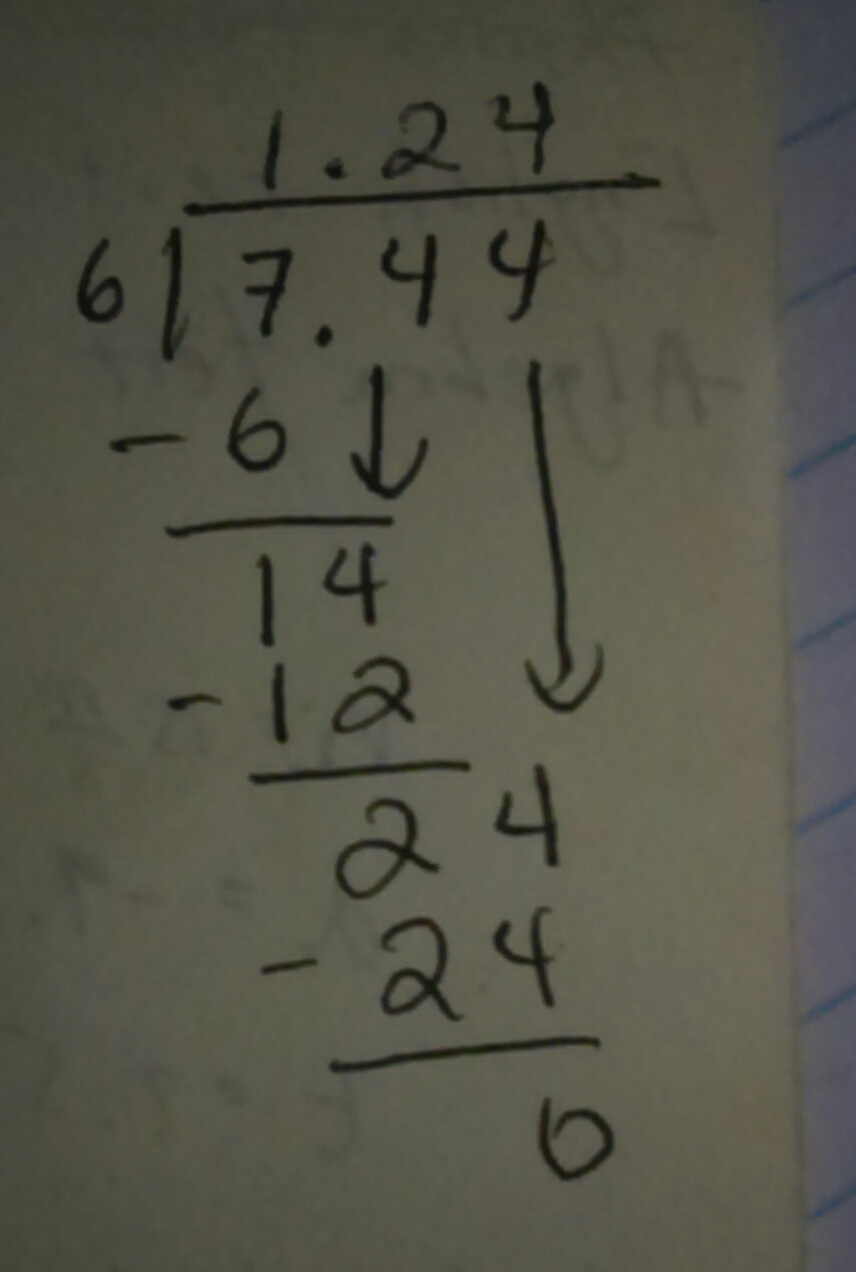 1.24
6)7.44
-6
14
-12
24
-24
0